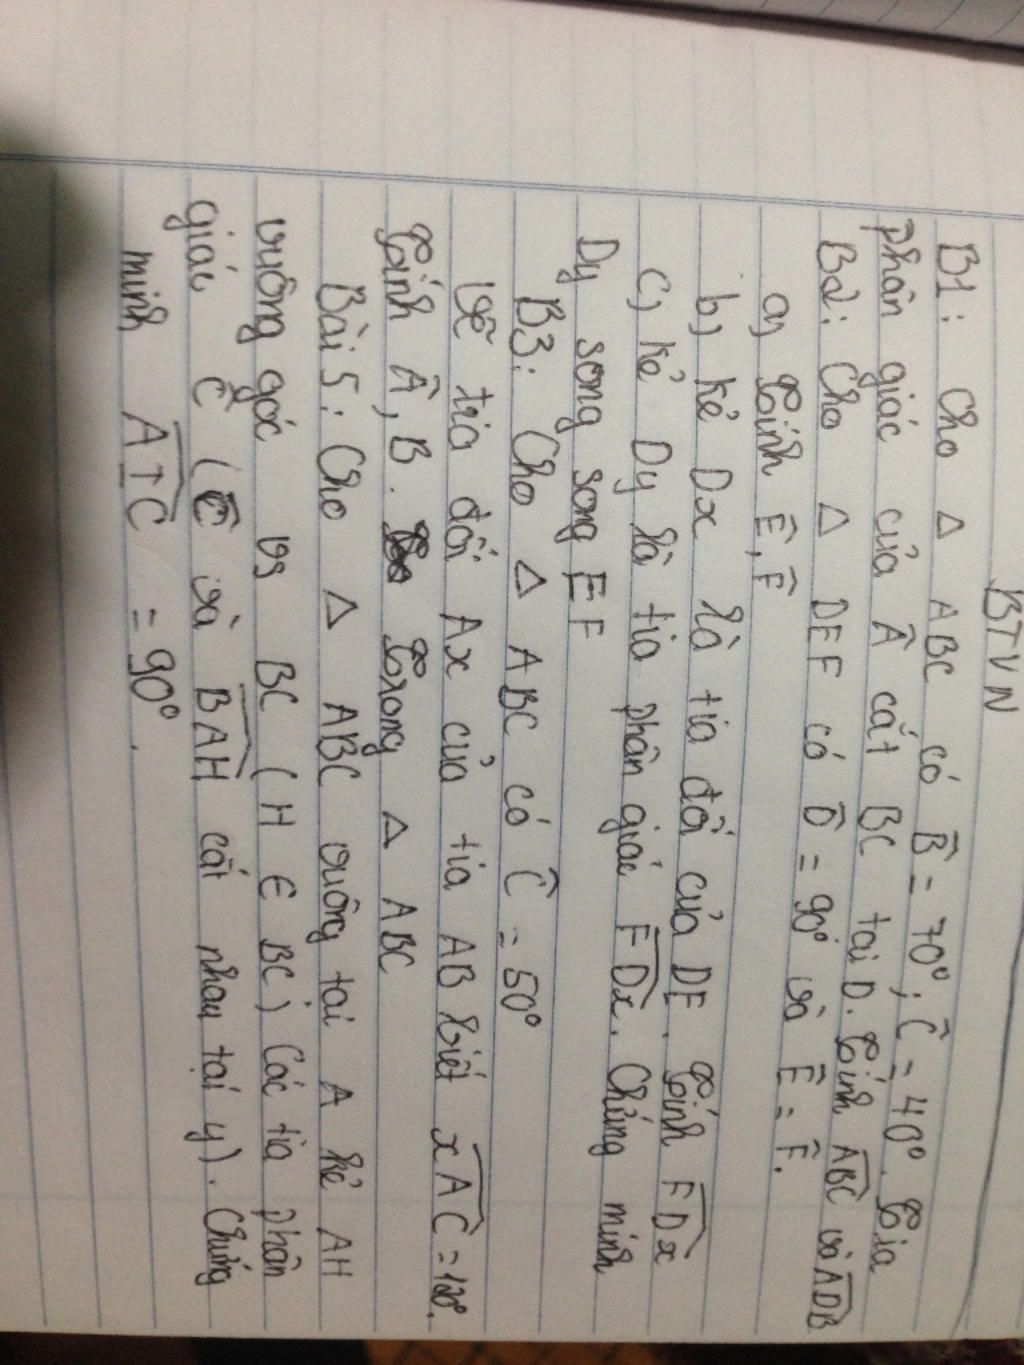 BTVN
B1: Cho Δ ABC có B̂ = 70°; Ĉ = 40°. Tia
phân giác của Â cắt BC tại D. Tính ABC và ADB
B2: Cho Δ DEF có D̂ = 90° và Ê = F̂.
a, Tính Ê, F̂
b, Kẻ Dx là tia đối của DE. Tính FDx
c, Kẻ Dy là tia phân giác FDx. Chứng minh
Dy song song EF
B3: Cho Δ ABC có Ĉ = 50°
Vẽ tia đối Ax của tia AB biết xAC = 120°.
Tính Â, B. Trong Δ ABC
Bài 5: Cho Δ ABC vuông tại A kẻ AH
vuông góc vs BC (H ∈ BC) Các tia phân
giác Ĉ (Ĉ và BAH cắt nhau tại y). Chứng
minh AIC = 90°.